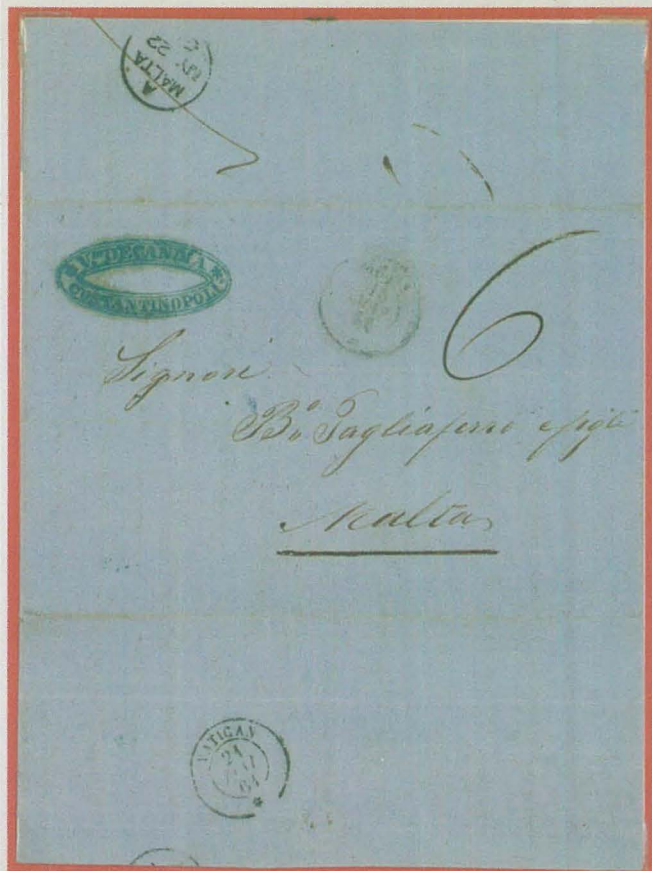 A
MALTA
MY 22
DECANDIA
COSTANTINOPOLI
6
Signori
Bo. Tagliaferro e figli
Malta
VATICAN
21
MAI
64